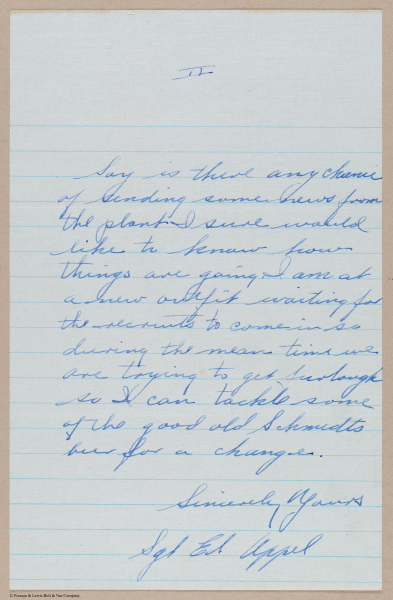 II
Say is there any chance
of sending some news from
the plant. I sure would
like to know how
things are going. I am at
a new outfit waiting for
the recruits to come in so
during the mean time we
are trying to get furlough
so I can tackle some
of the good old Schmidts
beer for a change.
Sincerely Yours
Sgt Ed Appel